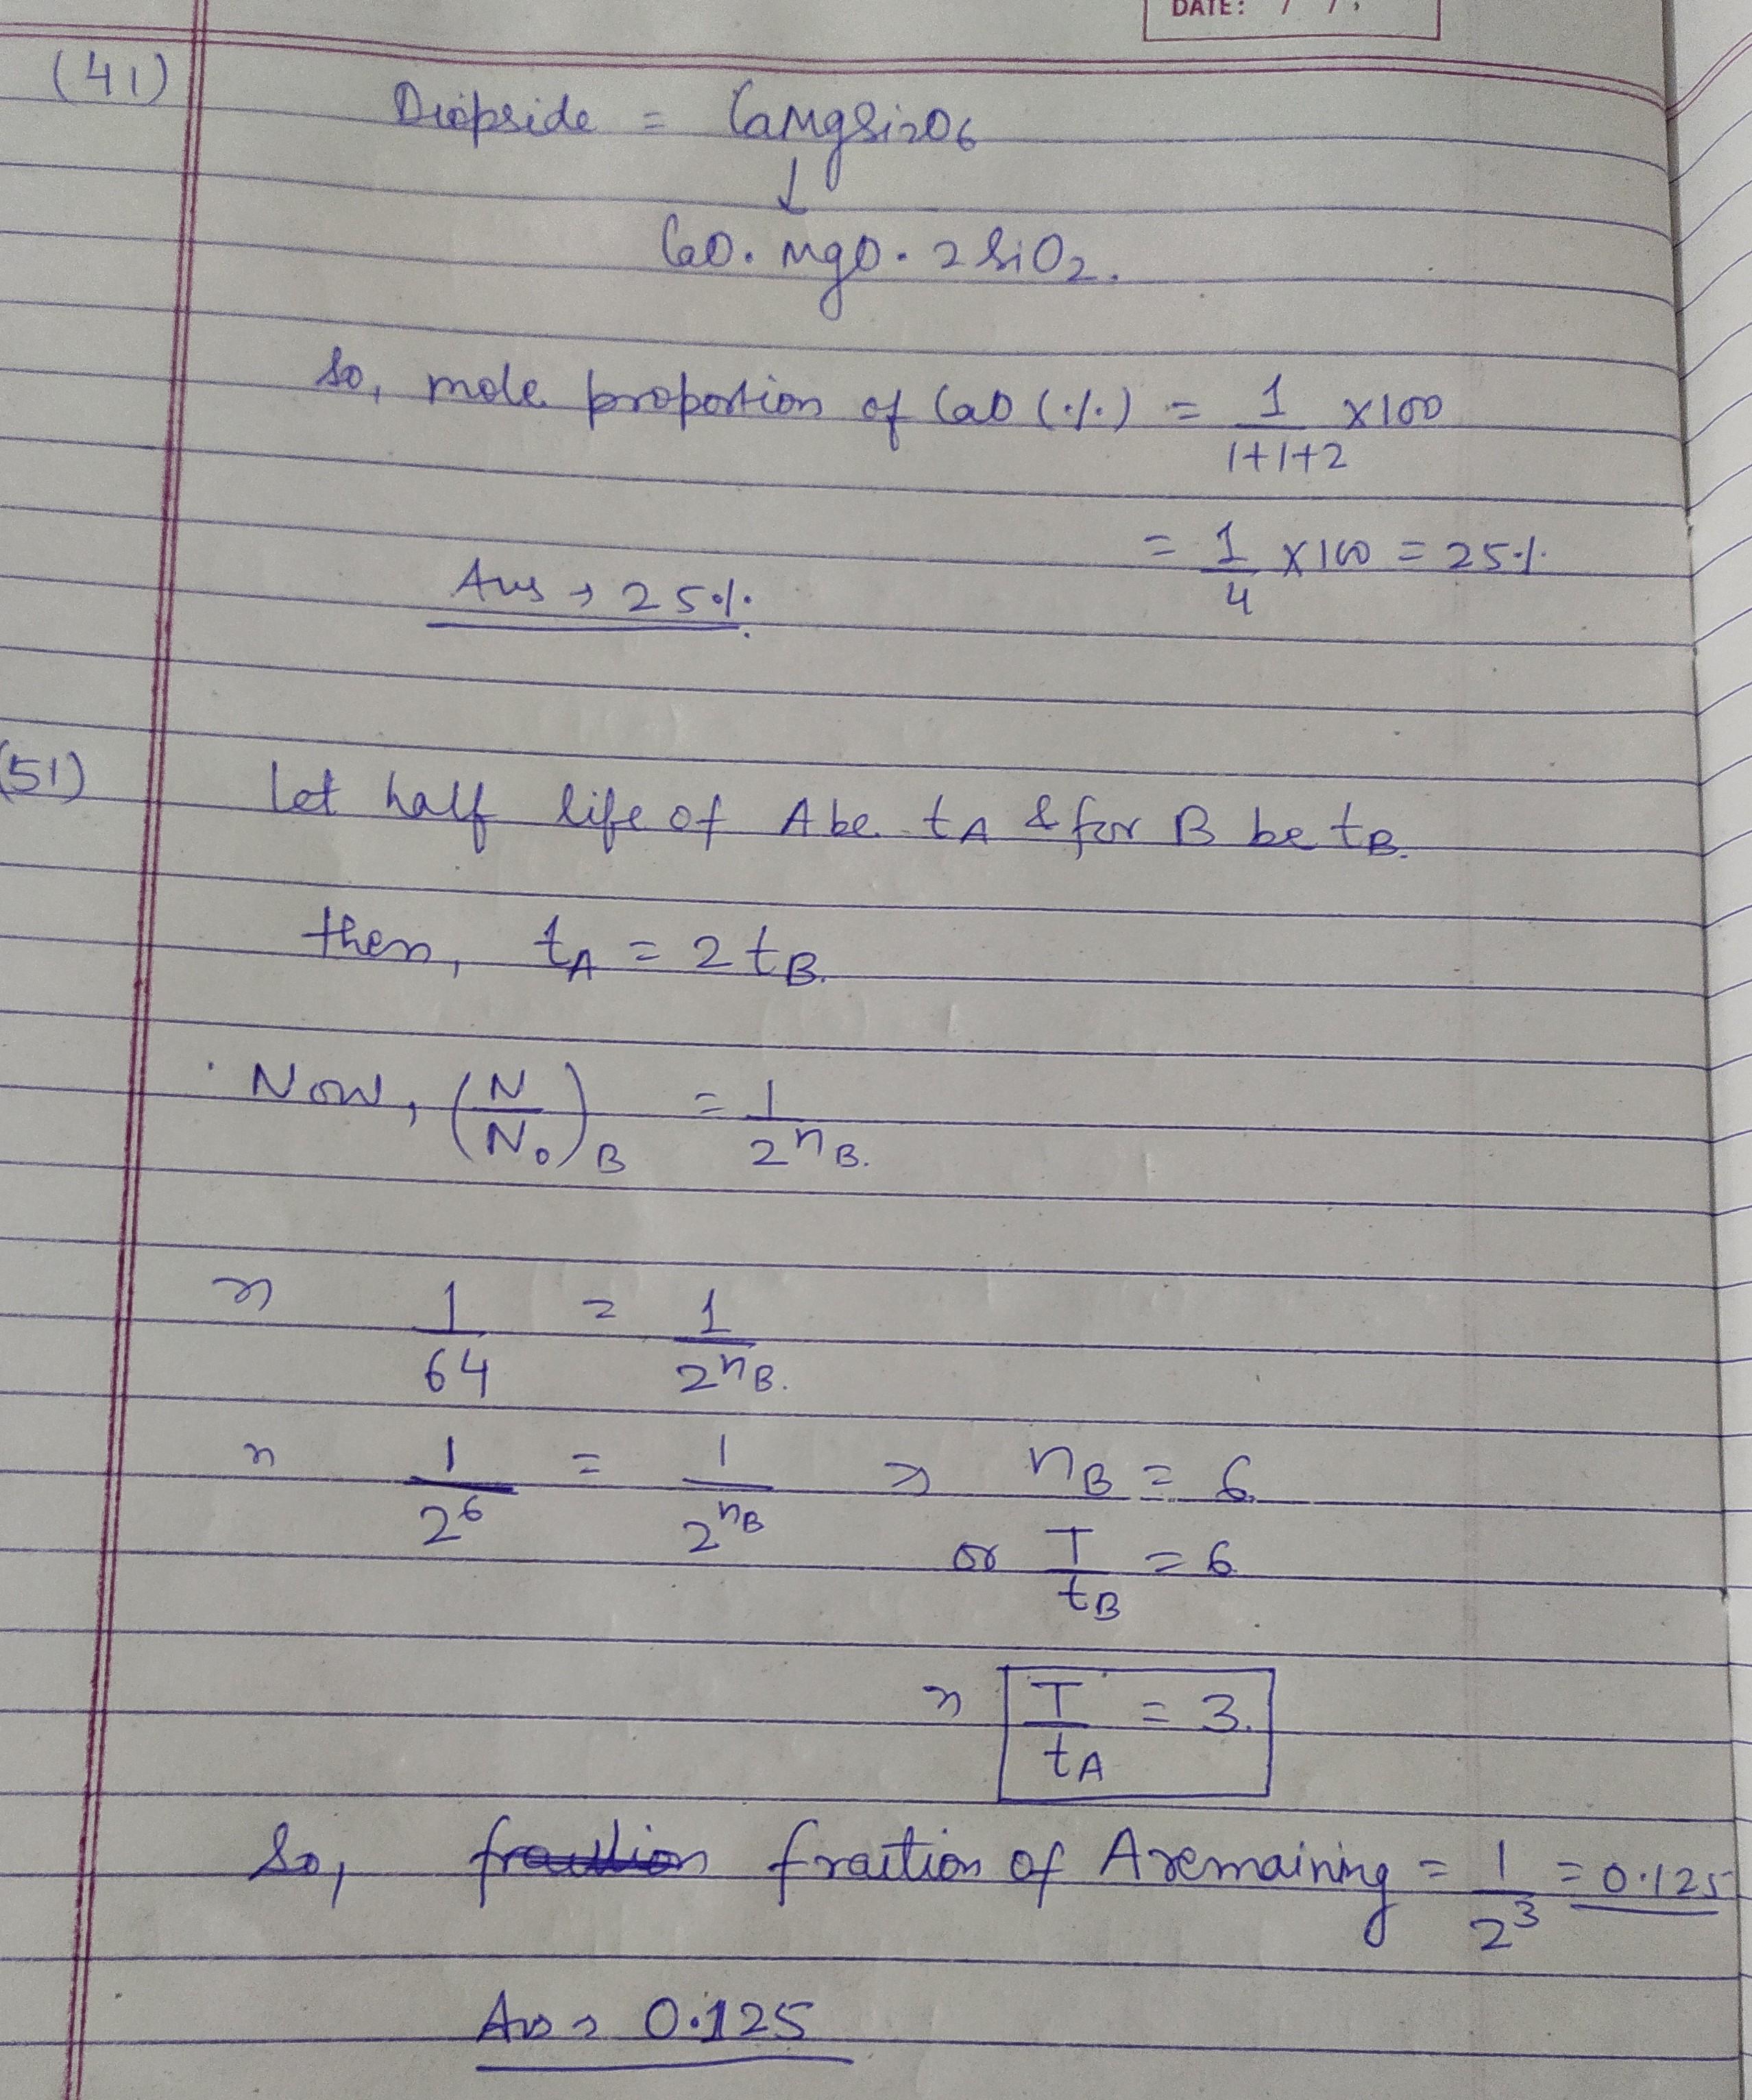 DATE: / /
(41)
Diopside = CaMgSi2O6
↓
CaO. MgO. 2SiO2.
So, mole proportion of CaO (%) = 1/(1+1+2) ×100
= 1/4 ×100 = 25%
Ans → 25%
(51) Let half life of A be tA & for B be tB.
then, tA = 2tB.
Now, (N/N0)B = 1/2^nB.
⇒ 1/64 = 1/2^nB.
⇒ 1/2^6 = 1/2^nB ⇒ nB = 6
or T/tB = 6
⇒ T/tA = 3.
So, fraction of A remaining = 1/2^3 = 0.125
Ans → 0.125